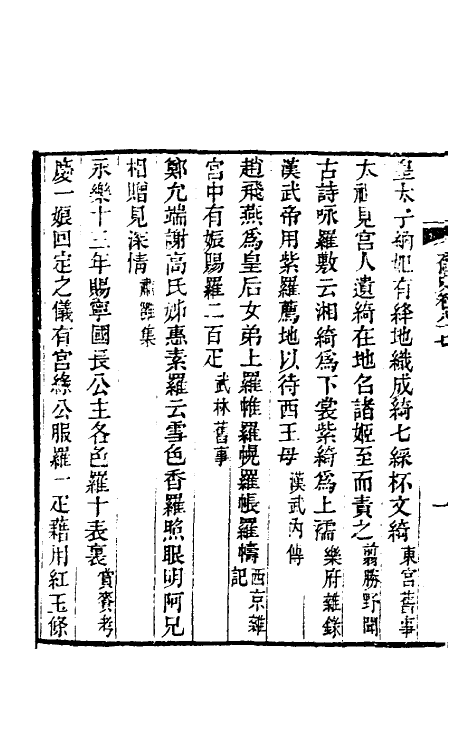 皇太子納妃有絳地織成綺七綵杯文綺東宮舊事
太祖見宮人遺綺在地名諸姬至而責之翦勝野聞
古詩咏羅敷云湘綺爲下裳紫綺爲上襦樂府雜錄
漢武帝用紫羅薦地以待西王母漢武內傳
趙飛燕爲皇后女弟上羅帷羅幌羅帳羅幬西京雜記
宮中有娠賜羅二百疋武林舊事
鄭允端謝高氏姊惠素羅云雪色香羅照眼明阿兄
相贈見深情肅雝集
永樂十三年賜寧國長公主各色羅十表裏賞賚考
慶一娘回定之儀有宮綠公服羅一疋藉用紅玉條